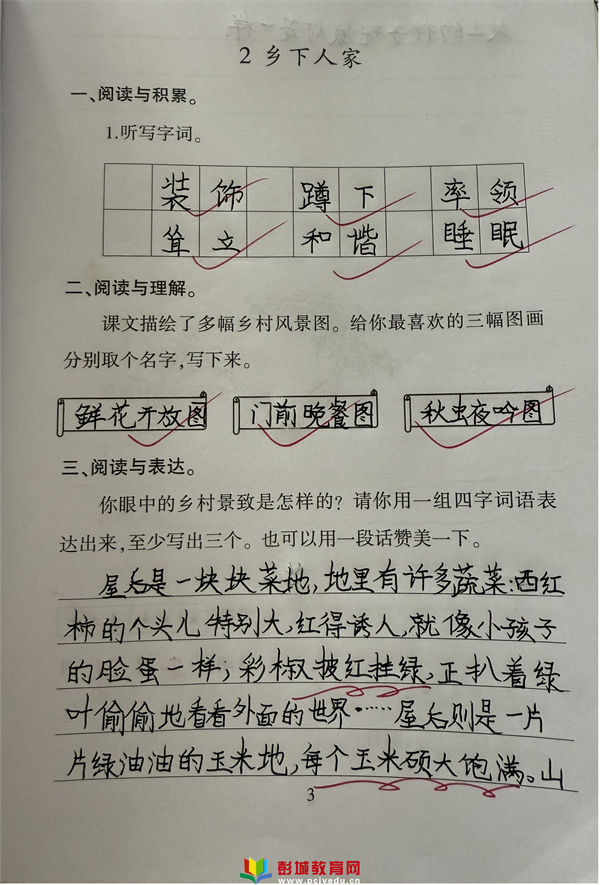 2 乡下人家
一、阅读与积累。
1.听写字词。
装饰 蹲下 率领
耸立 和谐 睡眠
二、阅读与理解。
课文描绘了多幅乡村风景图。给你最喜欢的三幅图画
分别取个名字,写下来。
鲜花开放图 门前晚餐图 秋虫夜吟图
三、阅读与表达。
你眼中的乡村景致是怎样的？请你用一组四字词语表
达出来,至少写出三个。也可以用一段话赞美一下。
屋后是一块块菜地,地里有许多蔬菜:西红
柿的个头儿特别大,红得诱人,就像小孩子
的脸蛋一样；彩椒披红挂绿,正扒着绿
叶偷偷地看看外面的世界……屋后则是一片
片绿油油的玉米地,每个玉米硕大饱满。山
3
彭城教育网
www.pcjyedu.cn